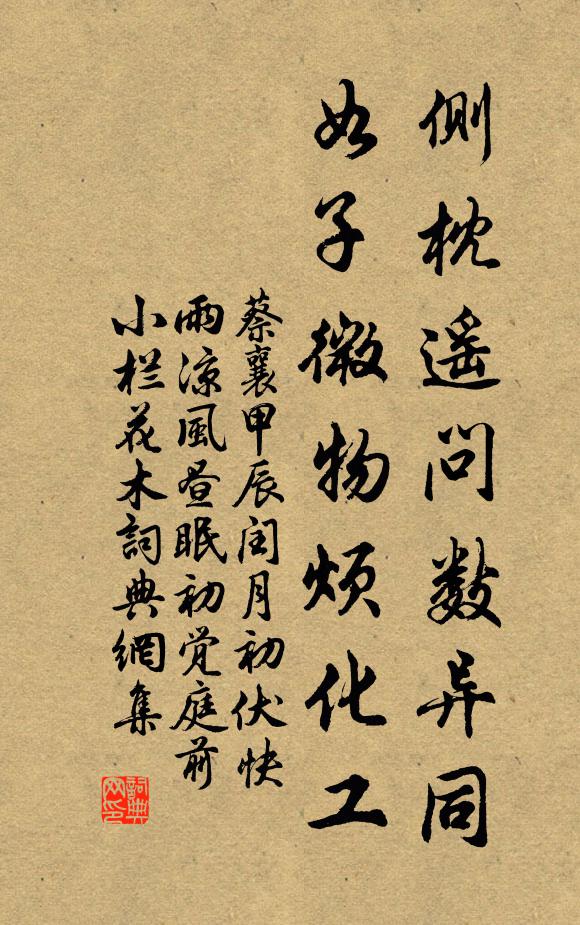 侧枕遥问数异同
如子微物烦化工
蔡襄甲辰闰月初伏快
雨涼風昼眠初觉庭前
小栏花木詞典網集
詞典网印